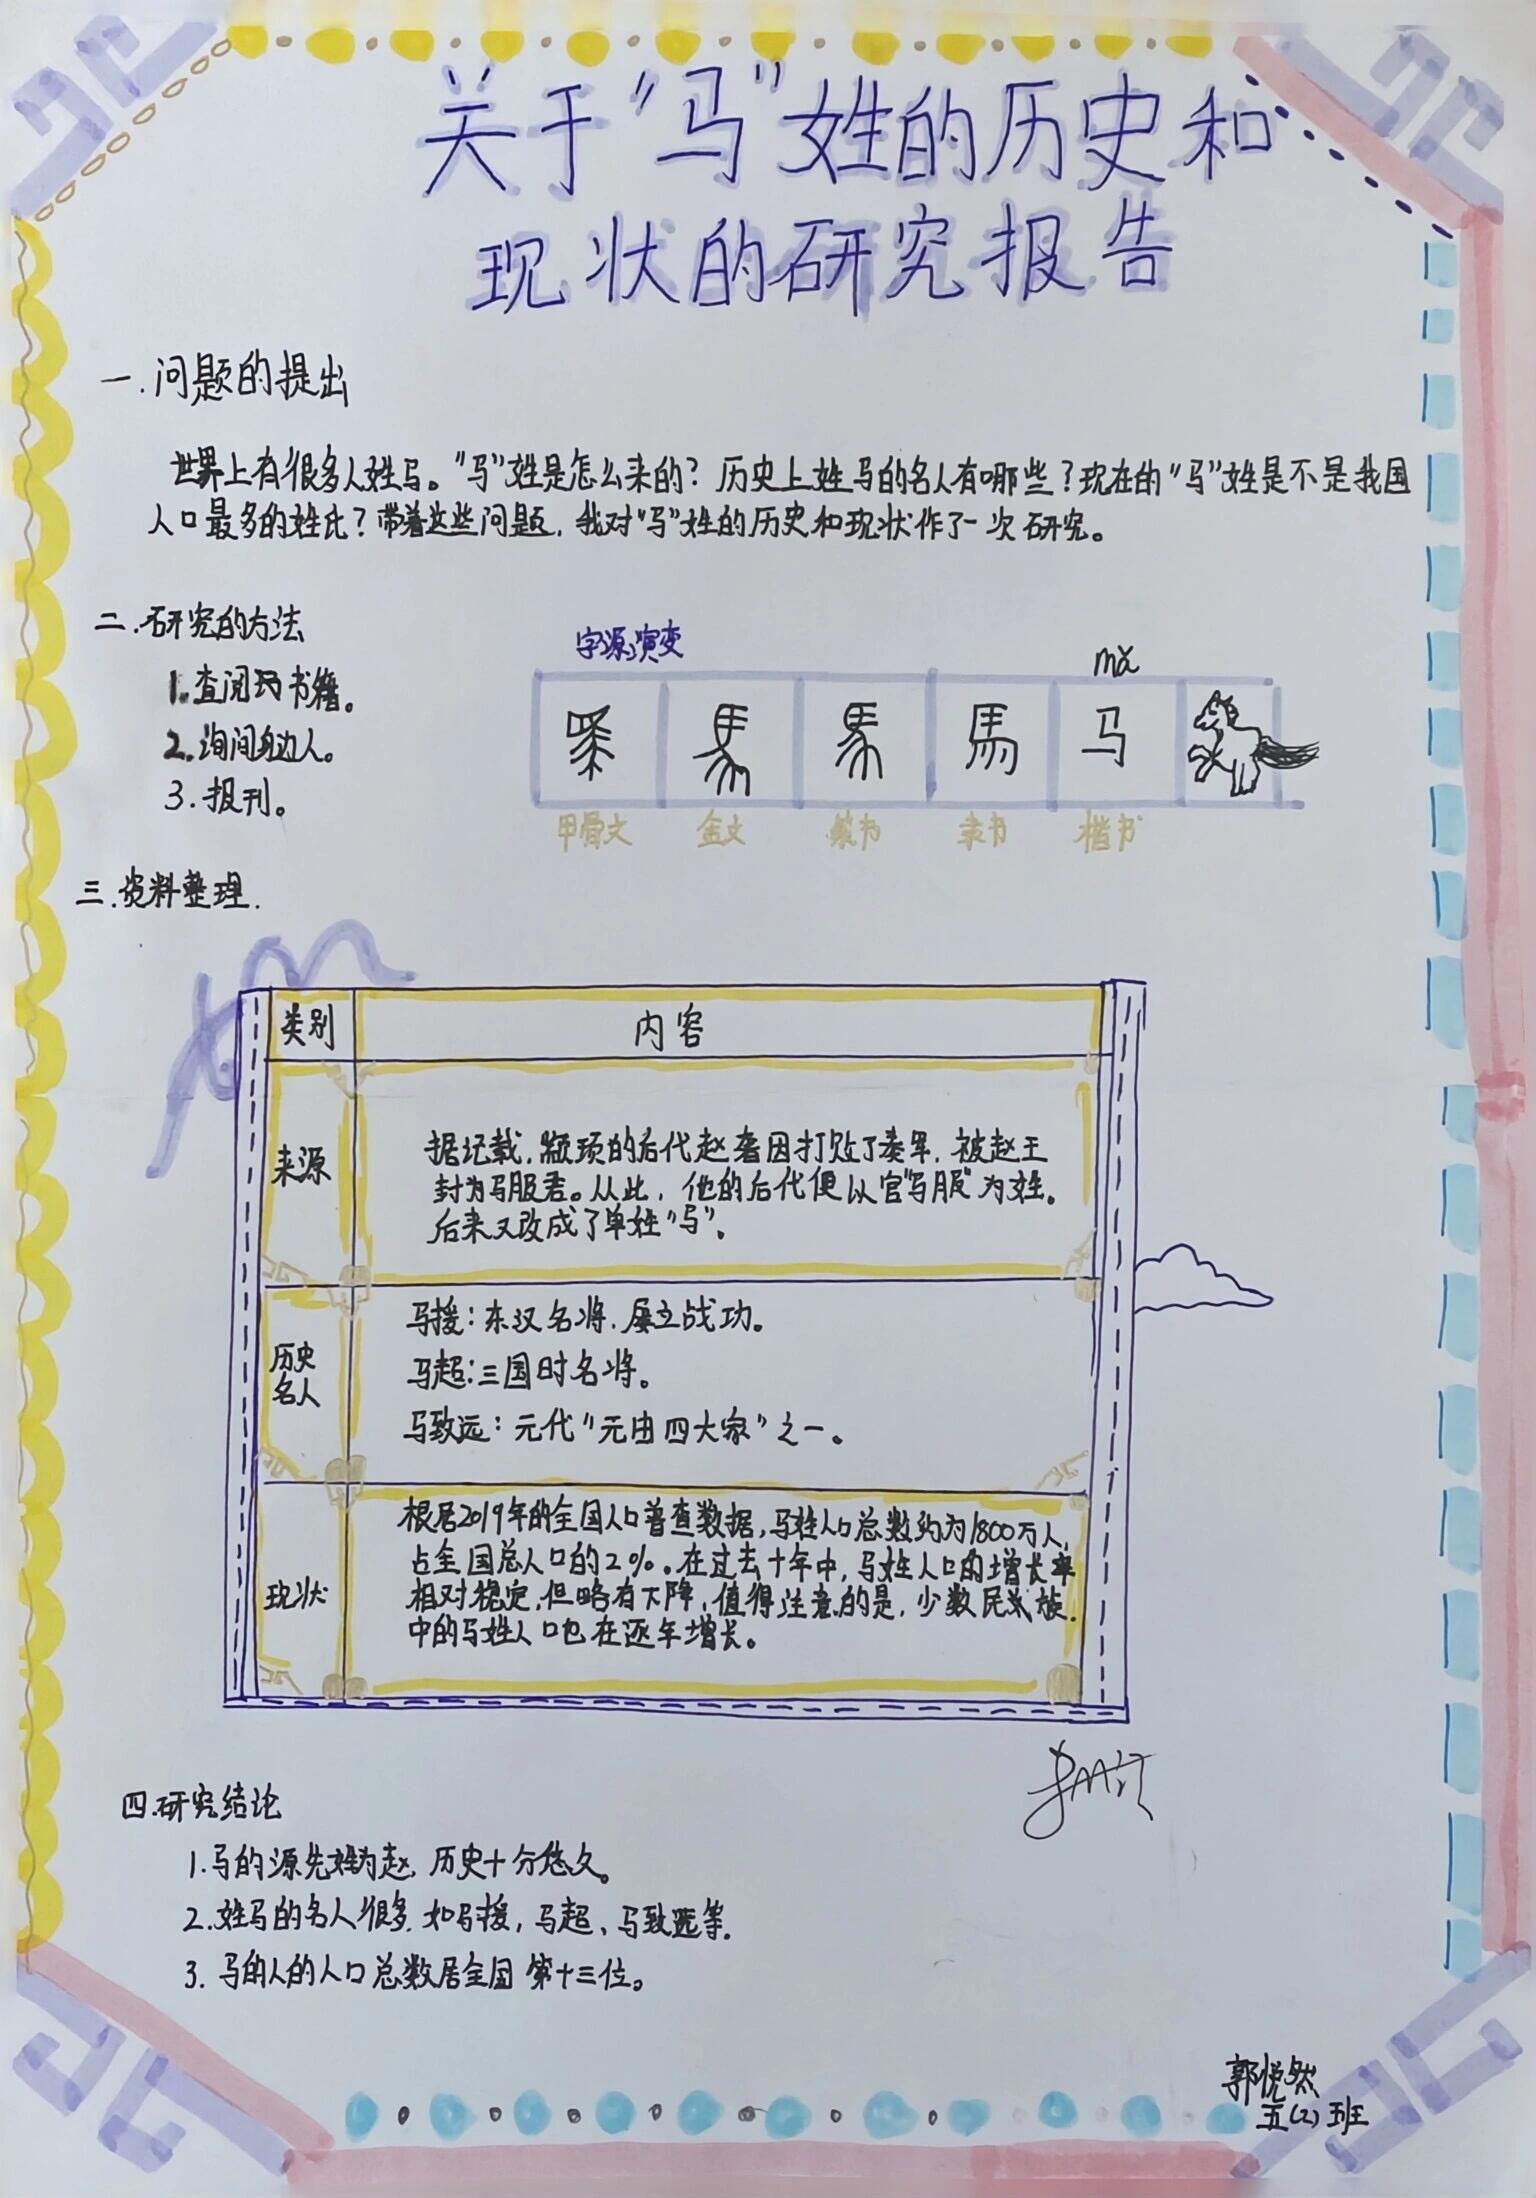 关于“马”姓的历史和
现状的研究报告
一.问题的提出
世界上有很多人姓马。“马”姓是怎么来的？历史上姓马的名人有哪些？现在的“马”姓是不是我国
人口最多的姓氏？带着这些问题，我对“马”姓的历史和现状作了一次研究。
二.研究的方法
1.查阅书籍。
2.询问身边人。
3.报刊。
字源演变
mǎ
马
甲骨文 金文 篆书 隶书 楷书
三.资料整理.
类别 内容
来源
据记载，颛顼的后代赵奢因打败了秦军，被赵王
封为马服君。从此，他的后代便以官“马服”为姓。
后来又改成了单姓“马”。
历史
名人
马援：东汉名将，屡立战功。
马超：三国时名将。
马致远：元代“元曲四大家”之一。
现状
根居2019年的全国人口普查数据，马姓人口总数约为1800万人，
占全国总人口的2%。在过去十年中，马姓人口的增长率
相对稳定，但略有下降，值得注意的是，少数民族
中的马姓人口也在逐年增长。
四.研究结论
1.马的源先姓为赵，历史十分悠久。
2.姓马的名人很多，如马援，马超、马致远等.
3.马的人的人口总数居全国第十三位。
郭悦然
五(2)班